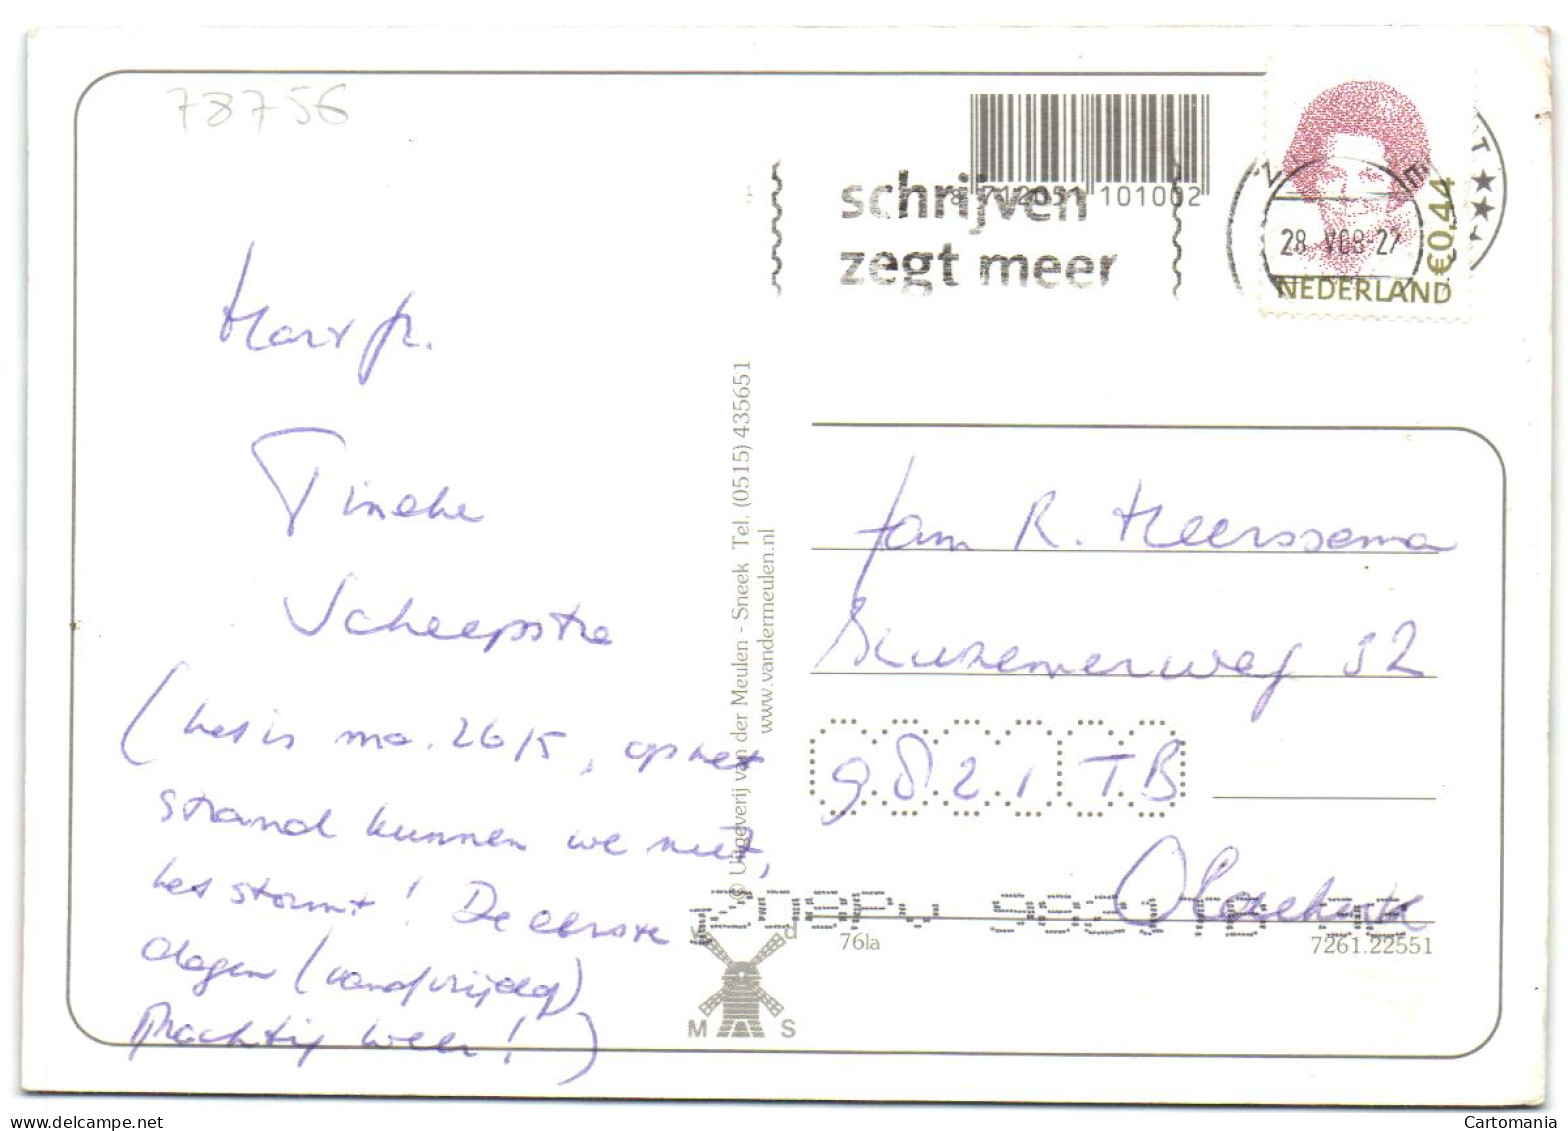 78756
8 71205 101002
schrijven
zegt meer
28 V08-27
€0,44
NEDERLAND
Hart gr.
Tineke
Scheepstra
(het is ma. 26/5, op het
strand kunnen we niet,
het stormt! De eerste
dagen (vanaf vrijdag)
Prachtig weer!)
© Uitgeverij van der Meulen - Sneek Tel. (0515) 435651
www.vandermeulen.nl
Jan R. Heerssema
52
9821 TB
Oldekerk
v d
M S
76la
7261.22551
Cartomania